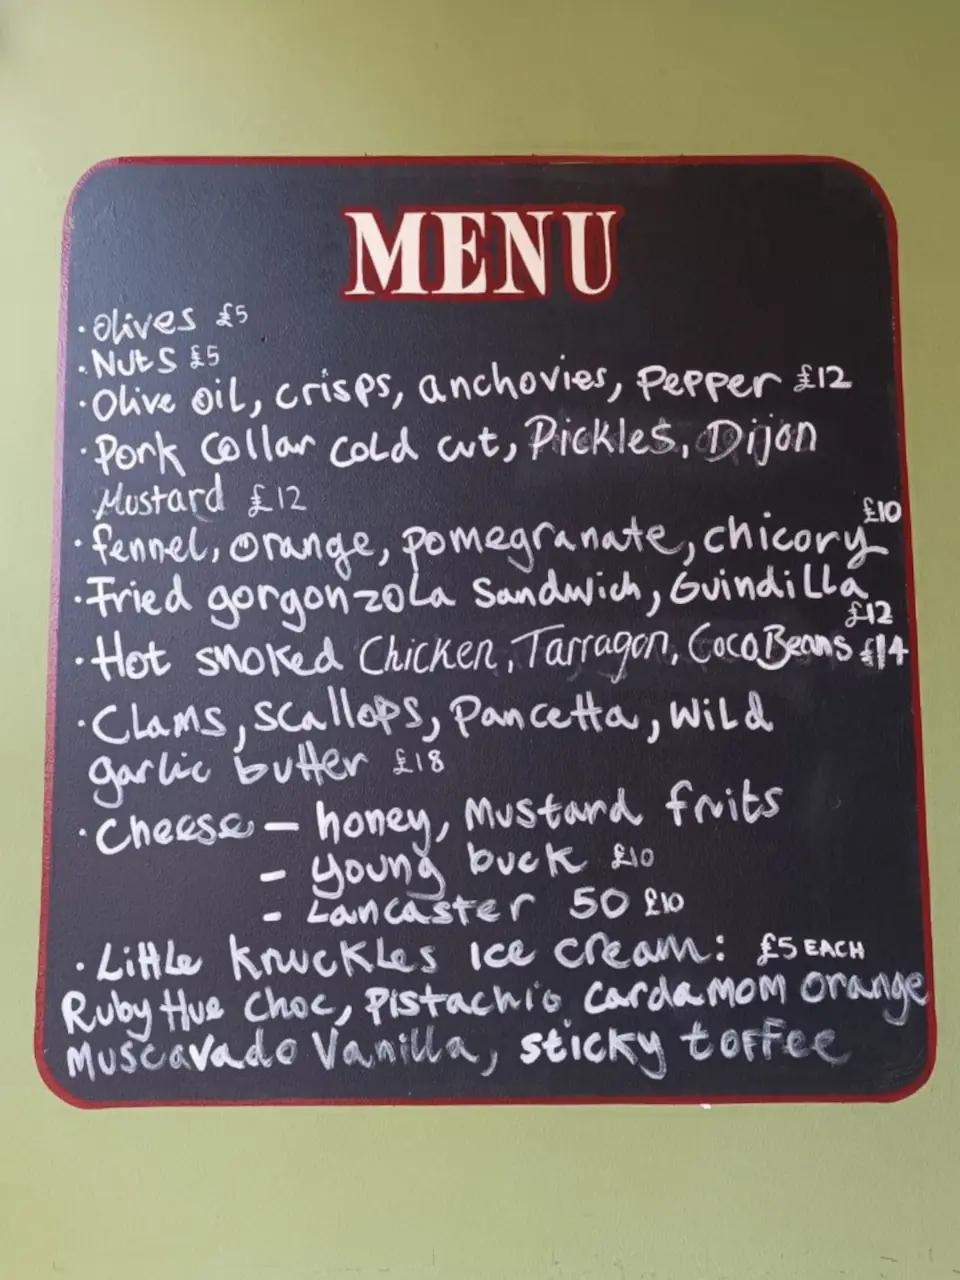 MENU
· Olives £5
· Nuts £5
· Olive oil, crisps, anchovies, Pepper £12
· Pork Collar cold cut, Pickles, Dijon
Mustard £12
£10
· fennel, orange, pomegranate, chicory
· Fried gorgonzola Sandwich, Guindilla
£12
· Hot smoked Chicken, Tarragon, Coco Beans £14
· Clams, scallops, pancetta, wild
garlic butter £18
· Cheese – honey, Mustard fruits
– young buck £10
– Lancaster 50 £10
· Little knuckles Ice cream: £5 EACH
Ruby Hue choc, Pistachio cardamom orange
Muscavado Vanilla, sticky toffee